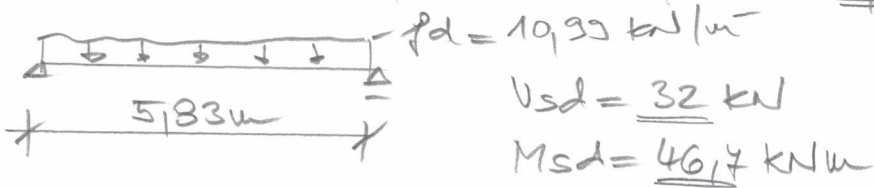 fd = 10,99 kN/m
5,83m
Vsd = 32 kN
Msd = 46,7 kNm